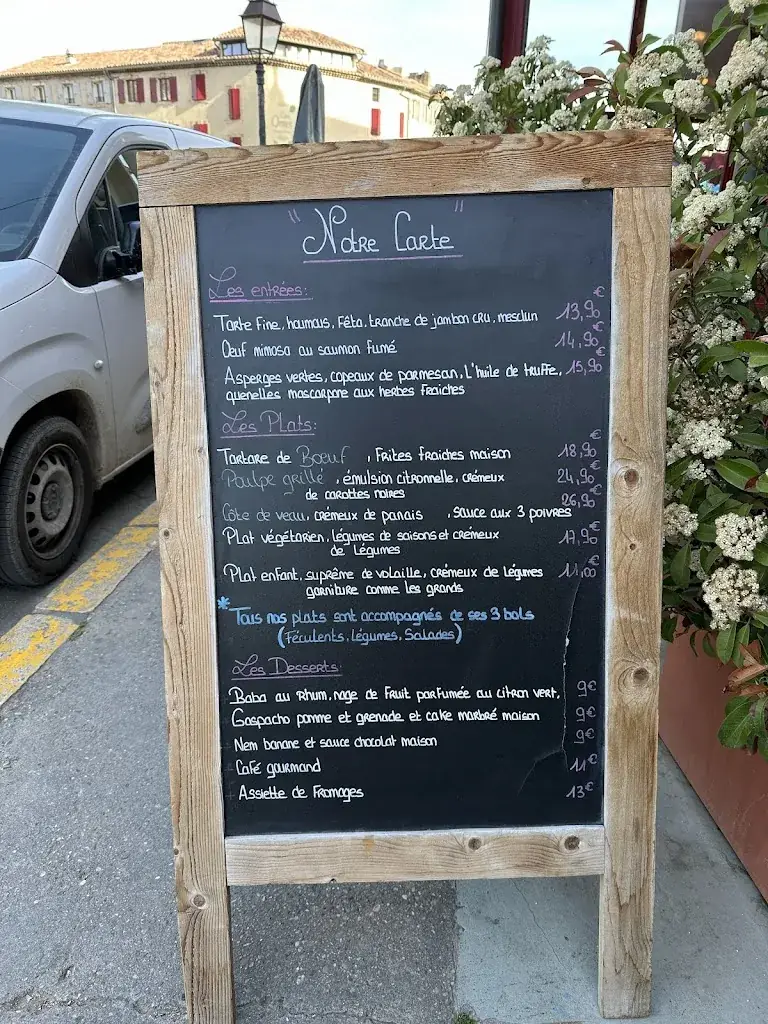 "Notre Carte"
Les entrées:
Tarte fine, houmous, Fêta, tranche de jambon cru, mesclun 13,90€
Oeuf mimosa au saumon fumé 14,90€
Asperges vertes, copeaux de parmesan, L'huile de truffe, 15,90€
quenelles mascarpone aux herbes fraiches
Les Plats:
Tartare de Bœuf , Frites fraiches maison 18,90€
Poulpe grillé , émulsion citronnelle, crémeux 24,90€
de carottes noires
Côte de veau, crémeux de panais , sauce aux 3 poivres 26,90€
Plat végétarien, légumes de saisons et crémeux 17,90€
de légumes
Plat enfant, suprême de volaille, crémeux de légumes 11,00€
garniture comme les grands
*Tous nos plats sont accompagnés de ses 3 bols
(Féculents, légumes, Salades)
Les Desserts:
Baba au rhum, nage de fruit parfumée au citron vert, 9€
Gaspacho pomme et grenade et cake marbré maison 9€
Nem banane et sauce chocolat maison 9€
Café gourmand 11€
Assiette de fromages 13€